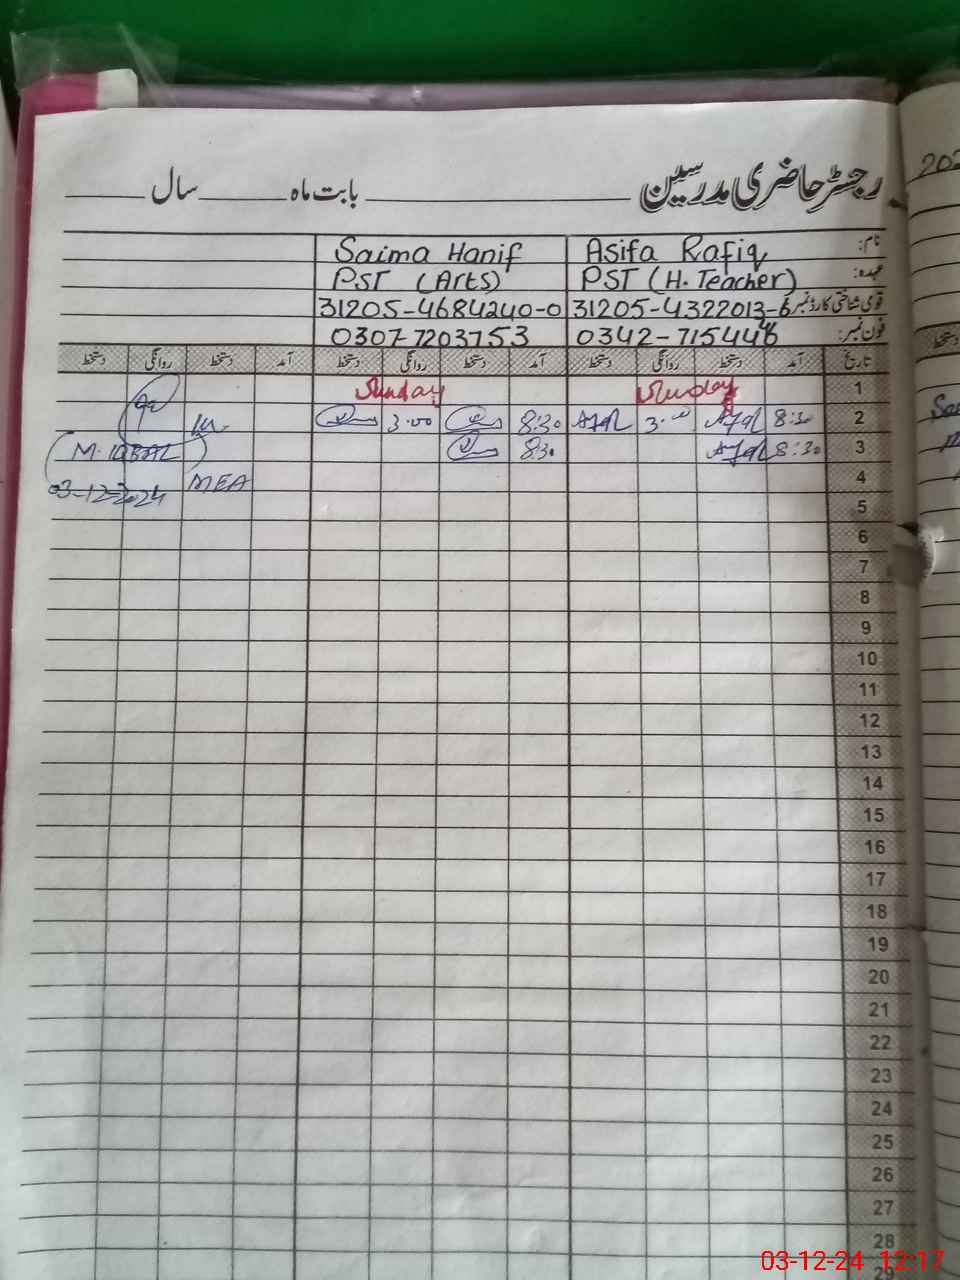 رجسٹر حاضری مدرسین ـــــــ بابت ماہ ـــــــ سال ـــــــ
نام: Asifa Rafiq Saima Hanif
عہدہ: PST (H. Teacher) PST (Arts)
قومی شناختی کارڈ نمبر 31205-4322013-6 31205-4684240-0
فون نمبر: 0342-7154446 0307-7203753
تاریخ آمد دستخط روانگی دستخط آمد دستخط روانگی دستخط آمد دستخط روانگی دستخط
1 Sunday Sunday
2 8:30 3:00 8:30 3:00
3 8:30 8:30 M. IQBAL
4 MEA 03-12-2024
5
6
7
8
9
10
11
12
13
14
15
16
17
18
19
20
21
22
23
24
25
26
27
28
29
03-12-24 12:17